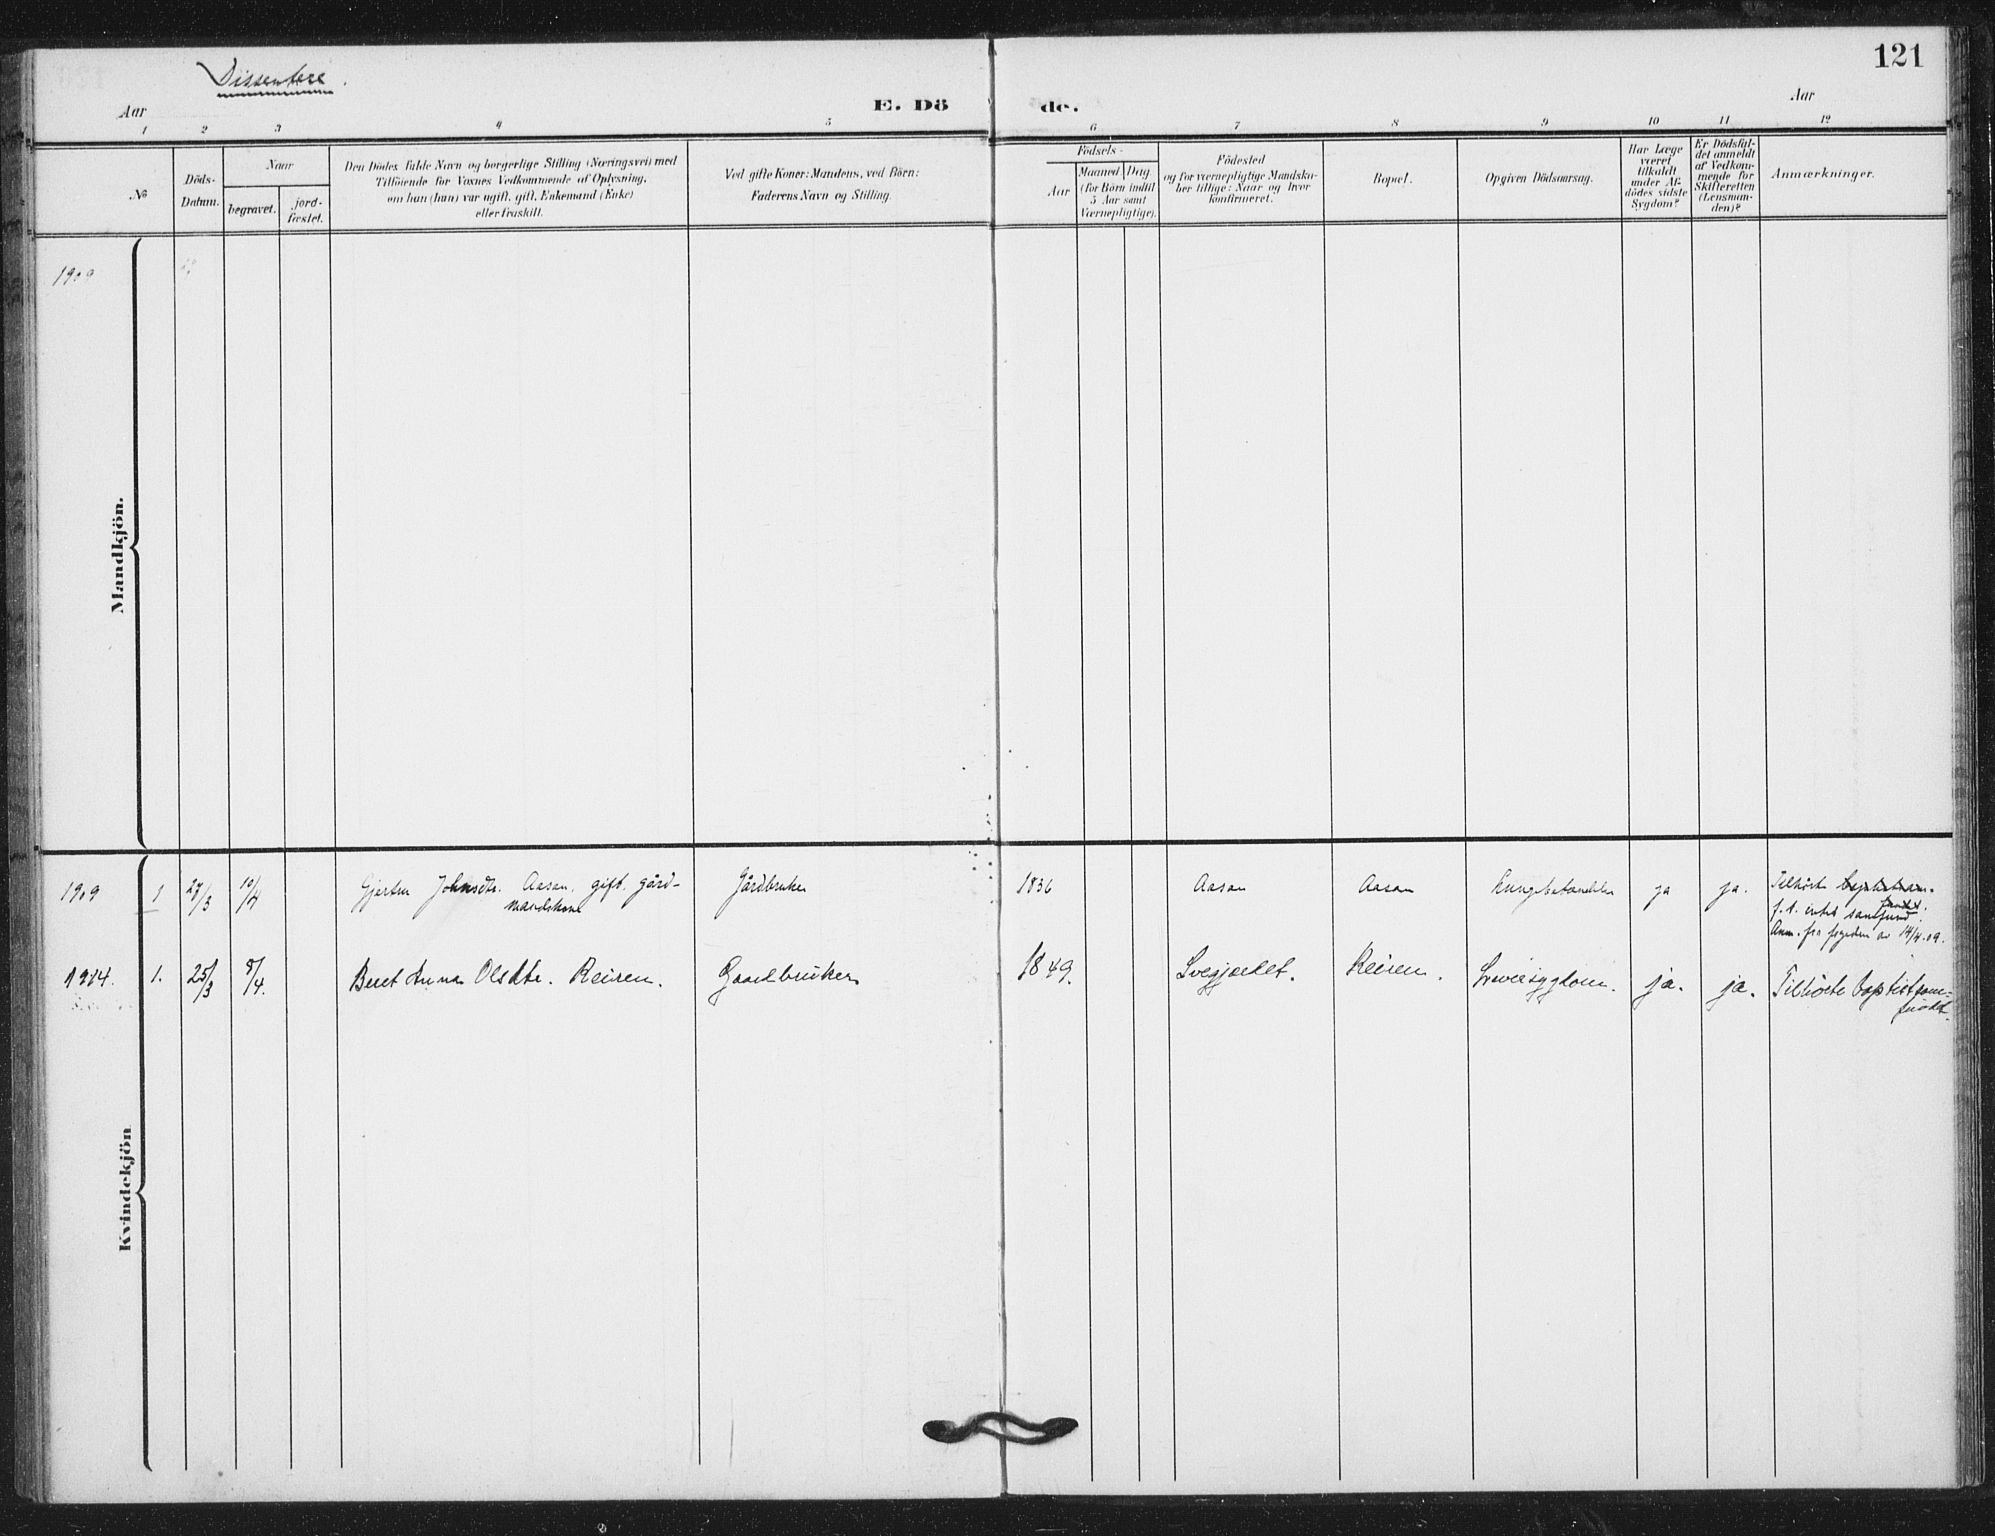 121
Dissentere.
Aar
E. Dö
de.
Aar
1 2 3 4 5 6 7 8 9 10 11 12
№
Döds-
Datum.
Naar
begravet.
jord-
fæstet.
Den Dödes fulde Navn og borgerlige Stilling (Næringsvei) med
Tilföiende for Voxnes Vedkommende af Oplysning,
om han (hun) var ugift, gift, Enkemand (Enke)
eller fraskilt.
Ved gifte Koner: Mandens, ved Börn:
Faderens Navn og Stilling.
Födsels-
Aar
Maaned
Dag
(for Börn indtil
5 Aar samt
Værnepligtige).
Födested
og for værnepligtige Mandska-
ber tillige: Naar og hvor
konfirmeret.
Bopæl.
Opgiven Dödsaarsag.
Har Læge
været
tilkaldt
under Af-
dödes sidste
Sygdom?
Er Dödsfal-
det anmeldt
af Vedkom-
mende for
Skifteretten
(Lensman-
den)?
Anmærkninger.
1909
Mandkjön.
1909 1 27/3 10/4 Gjertru Johnsdtr. Aasan, gift, gård-
mandskone
Gårdbruker 1836 Aasan Aasan Lungebetændelse ja ja. Tilhørte baptistsam-
fundet.
f. t. intet samfund.
Anm. fra fogeden av 14/4.09.
1914. 1. 25/3 8/4. Beret Anna Olsdtr. Reiren. Gaardbruker 1849. Svegjærdet. Reiren. Leversygdom. ja. ja. Tilhørte baptistsam-
fundet.
Kvindekjön